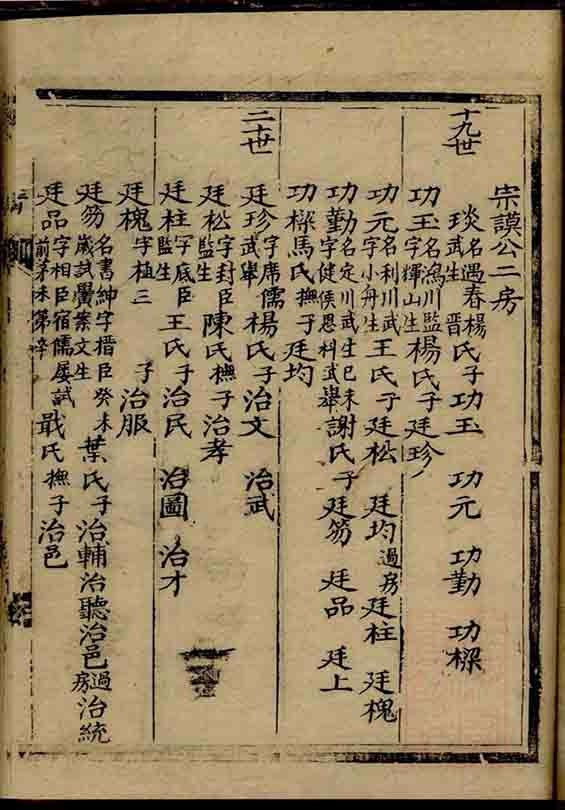 崇謨公二房
十九世
琰名遇春武生晋楊氏子功玉 功元 功勤 功樑
功玉名鴻川監生字輝山楊氏子廷珍
功元名利川武生字小舟王氏子廷松 廷均過房 廷柱 廷槐
功勤名定川武生己未字健侯恩科武舉謝氏子廷笏 廷品 廷上
功樑馬氏撫子廷均
二十世
廷珍字席儒武舉楊氏子治文 治武
廷松字封臣監生陳氏撫子治孝
廷柱字底臣監生王氏子治民 治圖 治才
廷槐字植三 子治服
廷笏名書紳字搢臣癸未歲試黌案文生葉氏子治輔治聽治邑過房治統
廷品字相臣宿儒屢試前茅未第卒戢氏撫子治邑